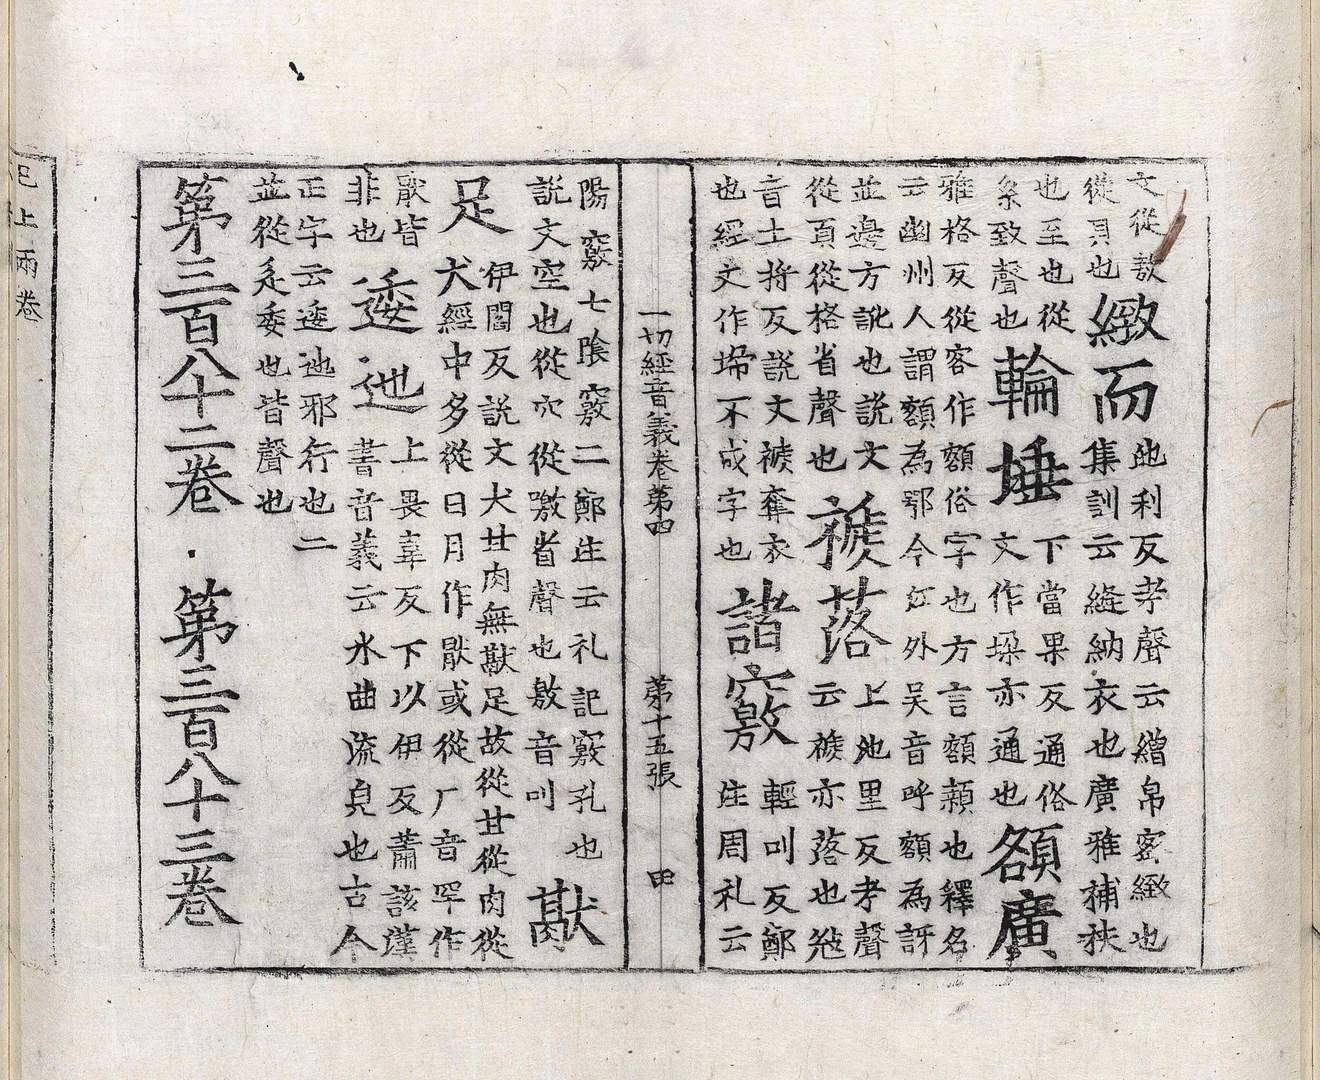 文從敖
從貝也緻而馳利反考聲云繒帛密緻也
集訓云縫納衣也廣雅補袟
也至也從
糸致聲也輪埵下當果反通俗
文作垛亦通也額廣
雅格反從客作額俗字也方言額顙也釋名
云幽州人謂額為鄂今江外吴音呼額為訝
並邊方訛也說文
從頁從格省聲也褫落上池里反考聲
云褫亦落也
音士捋反説文褫奪衣
也經文作㙇不成字也諸竅輕叫反鄭
注周礼云
一切經音義卷第四 第十五張 田
陽竅七陰竅二鄭注云礼記竅孔也
説文空也從穴從噭省聲也敫音叫猒
足伊閻反説文犬甘肉無猒足故從甘從肉從
犬經中多從日月作猒或從厂音罕作
厭皆
非也逶迤上畏韋反下以伊反蕭該漢
書音義云水曲流皃也古今
正字云逶迆邪行也二
並從辵委也皆聲也
第三百八十二卷 第三百八十三卷
已上兩卷